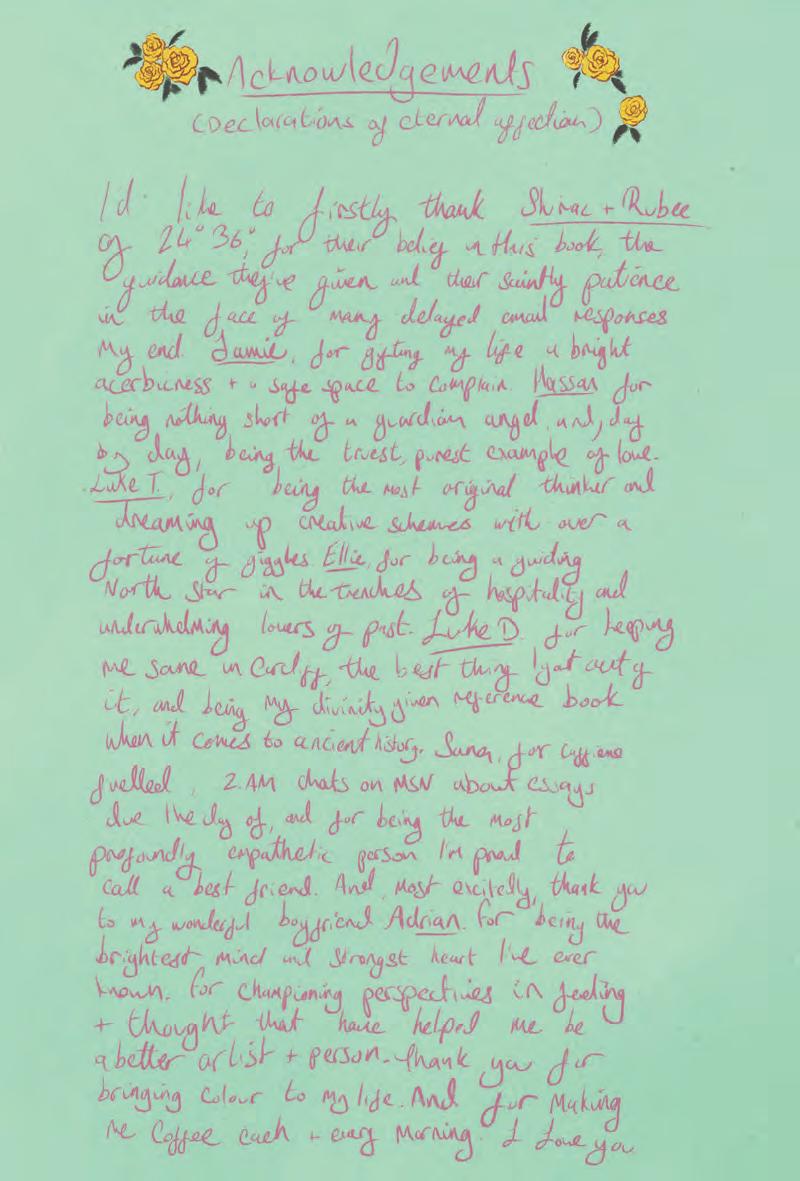 Acknowledgements
(Declarations of eternal affection)
I'd like to firstly thank Shiraz + Rubee
of 24° 36°, for their belief in this book, the
guidance they've given and their saintly patience
in the face of many delayed email responses
my end. Jamie, for gifting my life a bright
acerbicness + a safe space to complain. Hassan for
being nothing short of a guardian angel, and, day
by day, being the truest, purest example of love.
Luke T., for being the most original thinker and
dreaming up creative schemes with over a
fortune of giggles. Ellie, for being a guiding
North Star in the trenches of hospitality and
underwhelming lovers of past. Luke D. for keeping
me sane in Cardiff, the best thing I got out of
it, and being my divinity given reference book
when it comes to ancient history. Sana, for caffiene
fuelled, 2.AM chats on MSN about essays
due the day of, and for being the most
profoundly empathetic person I'm proud to
call a best friend. And, most excitedly, thank you
to my wonderful boyfriend Adrian. For being the
brightest mind and strongest heart I've ever
known. For championing perspectives in feeling
+ thought that have helped me be
a better artist + person. Thank you for
bringing colour to my life. And for making
me coffee each + every morning. I love you